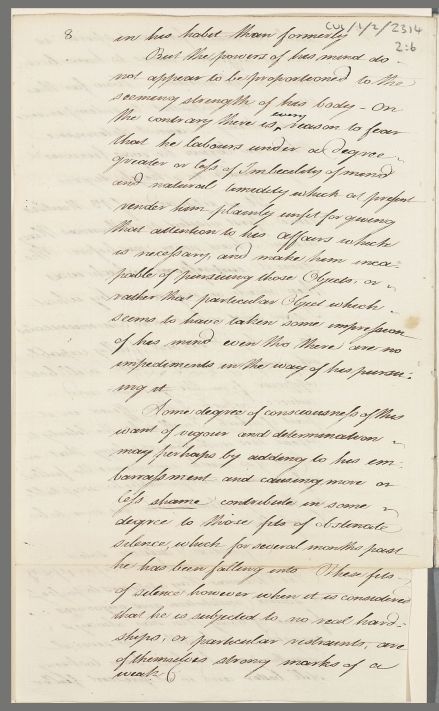 CUL/1/2/2314
2:6
8
in his habit than formerly
But the powers of his mind do
not appear to be proportioned to the
seeming strength of his body – On
the contrary there is every reason to fear
that he labours under a degree
greater or less of Imbecility of mind
and natural timidity which at present
render him plainly unfit for giving
that attention to his affairs which
is necessary, and make him inca-
pable of pursuing those Objects, or
rather that particular Object which
seems to have taken some impression
of his mind even tho there are no
impediments in the way of his pursu-
ing it.
Some degree of consciousness of this
want of vigour and determination
may perhaps by adding to his em-
barrassment and causing more or
less shame contribute in some
degree to those fits of obstinate
silence, which for several months past
he has been falling into These fits
of silence however when it is considered
that he is subjected to no real hard-
ships, or particular restraints, are
of themselves strong marks of a
weak